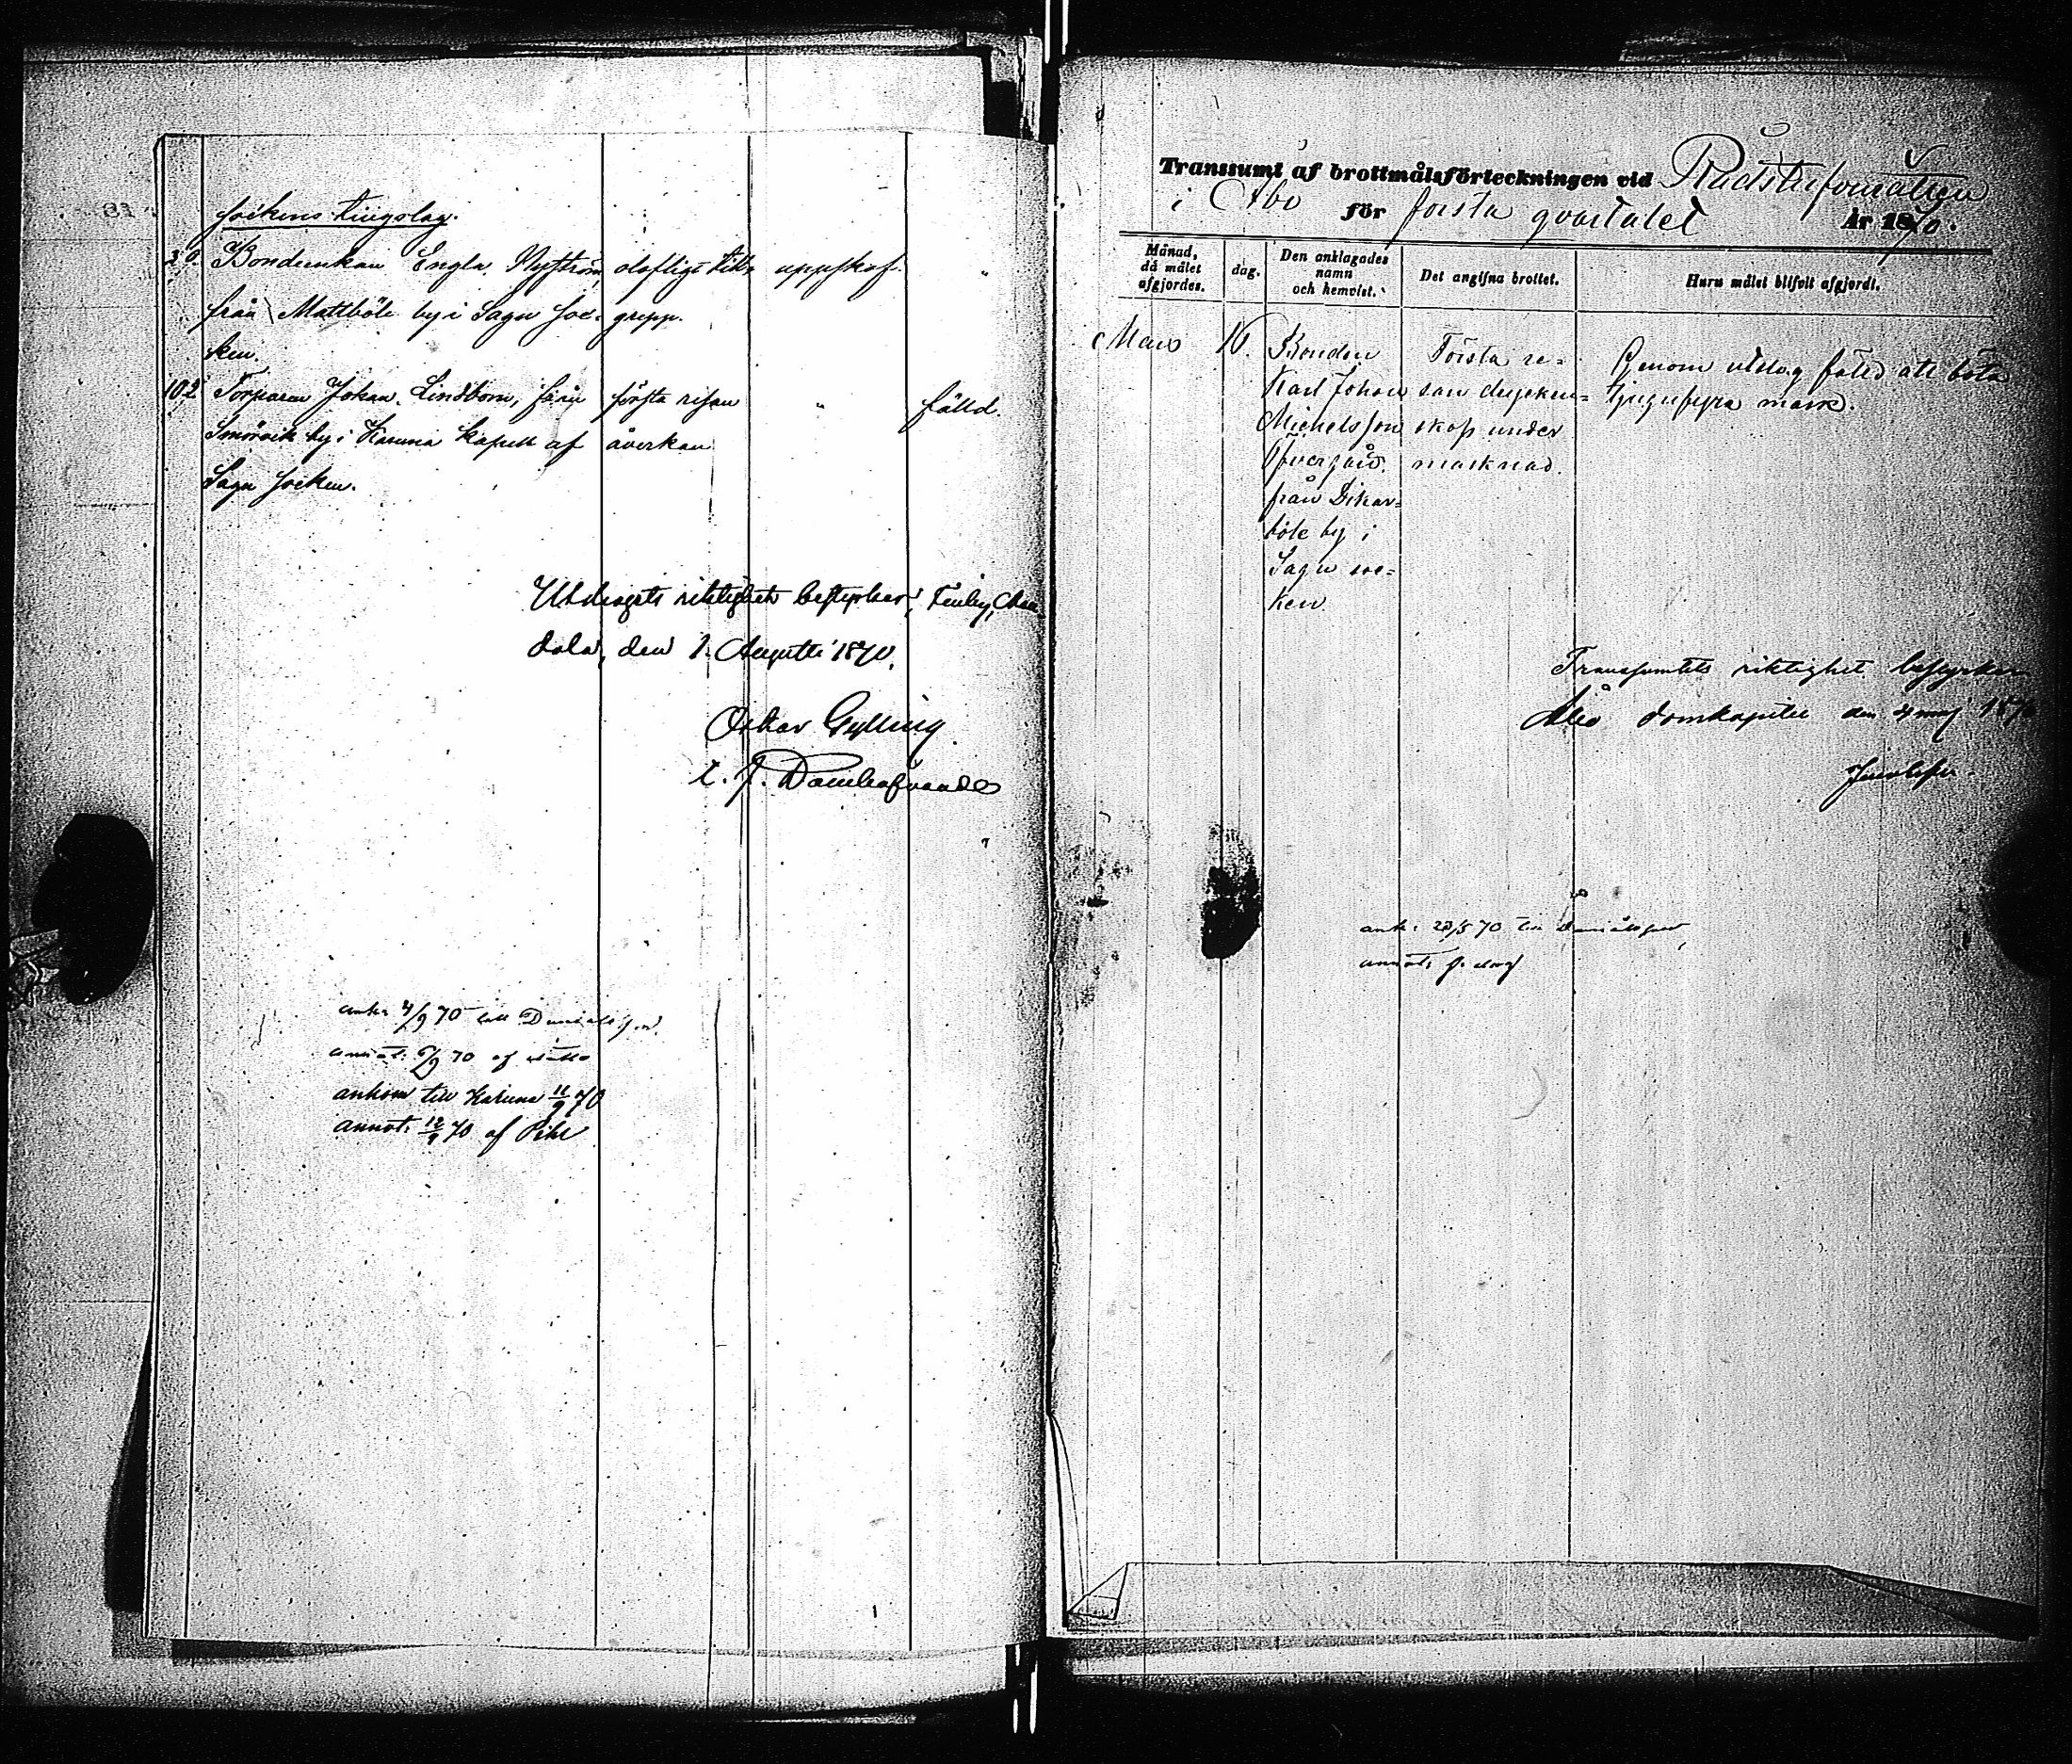 sockens tingslag.
30. Bondeenkan Engla Nyström, olofligt till= uppskof. "
från Mattböle by i Sagu soc- grepp.
ken.
102 Torparen Johan Lindbom, från första resan " fälld.
Smörvik by i Karuna kapell af åverkan
Sagu socken.
Utdragets riktighet bestyrker;
dala, den 1. Augusti 1870.
Oskar Gylling
ank. 4/9 70 till
annot. 9 70 af
ankom till Karuna 11/9 70
annot. 12/9 70 af Pihl
Transsumt af brottmålsförteckningen vid Rådstufvurätten
i Åbo för första qvartalet År 1870.
Månad,
då målet
afgjordes.
dag.
Den anklagades
namn
och hemvist.
Det angifna brottet.
Huru målet blifvit afgjordt.
Mars 16. Bonden Första re= Genom utslag fälld att böta
Karl Johan san drycken= tjugufyra mark.
Michelsson skap under
Öfvergård marknad.
från Dikar=
böle by i
Sagu soc=
ken
Transsumtets riktighet bestyrker
Åbo domkapitel den 4 maj 1870
ank. 23/5 70 till
annot.